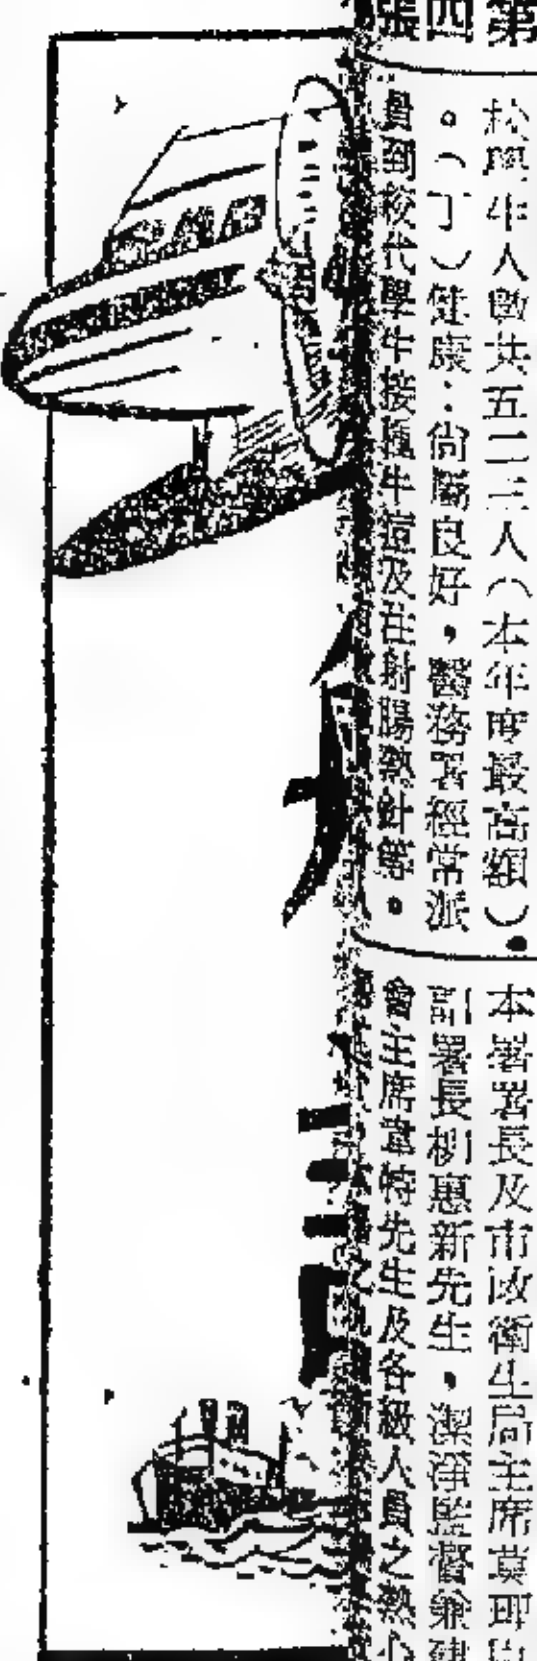 第四張
於學年人數共五二三人（本年度最高額）。
。（丁）健康：尙屬良好，醫務署經常派
員到校代學生接種牛痘及注射腸熱針等。
本署署長及市政衞生局主席莫
署長柳惠新先生，潔淨監督兼建
會主席韋特先生及各級人員之熱心